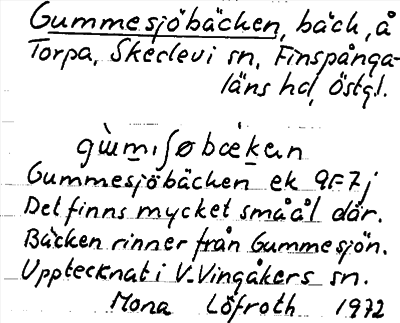 Gummesjöbäcken, bäck, å
Torpa, Skedevi sn, Finspånga-
läns hd, Östgl.
gùmıʃøbœ̀kɐn
Gummesjöbäcken ek 9F7j
Det finns mycket småål där.
Bäcken rinner från Gummesjön.
Upptecknat i V. Vingåkers sn.
Mona Löfroth 1972